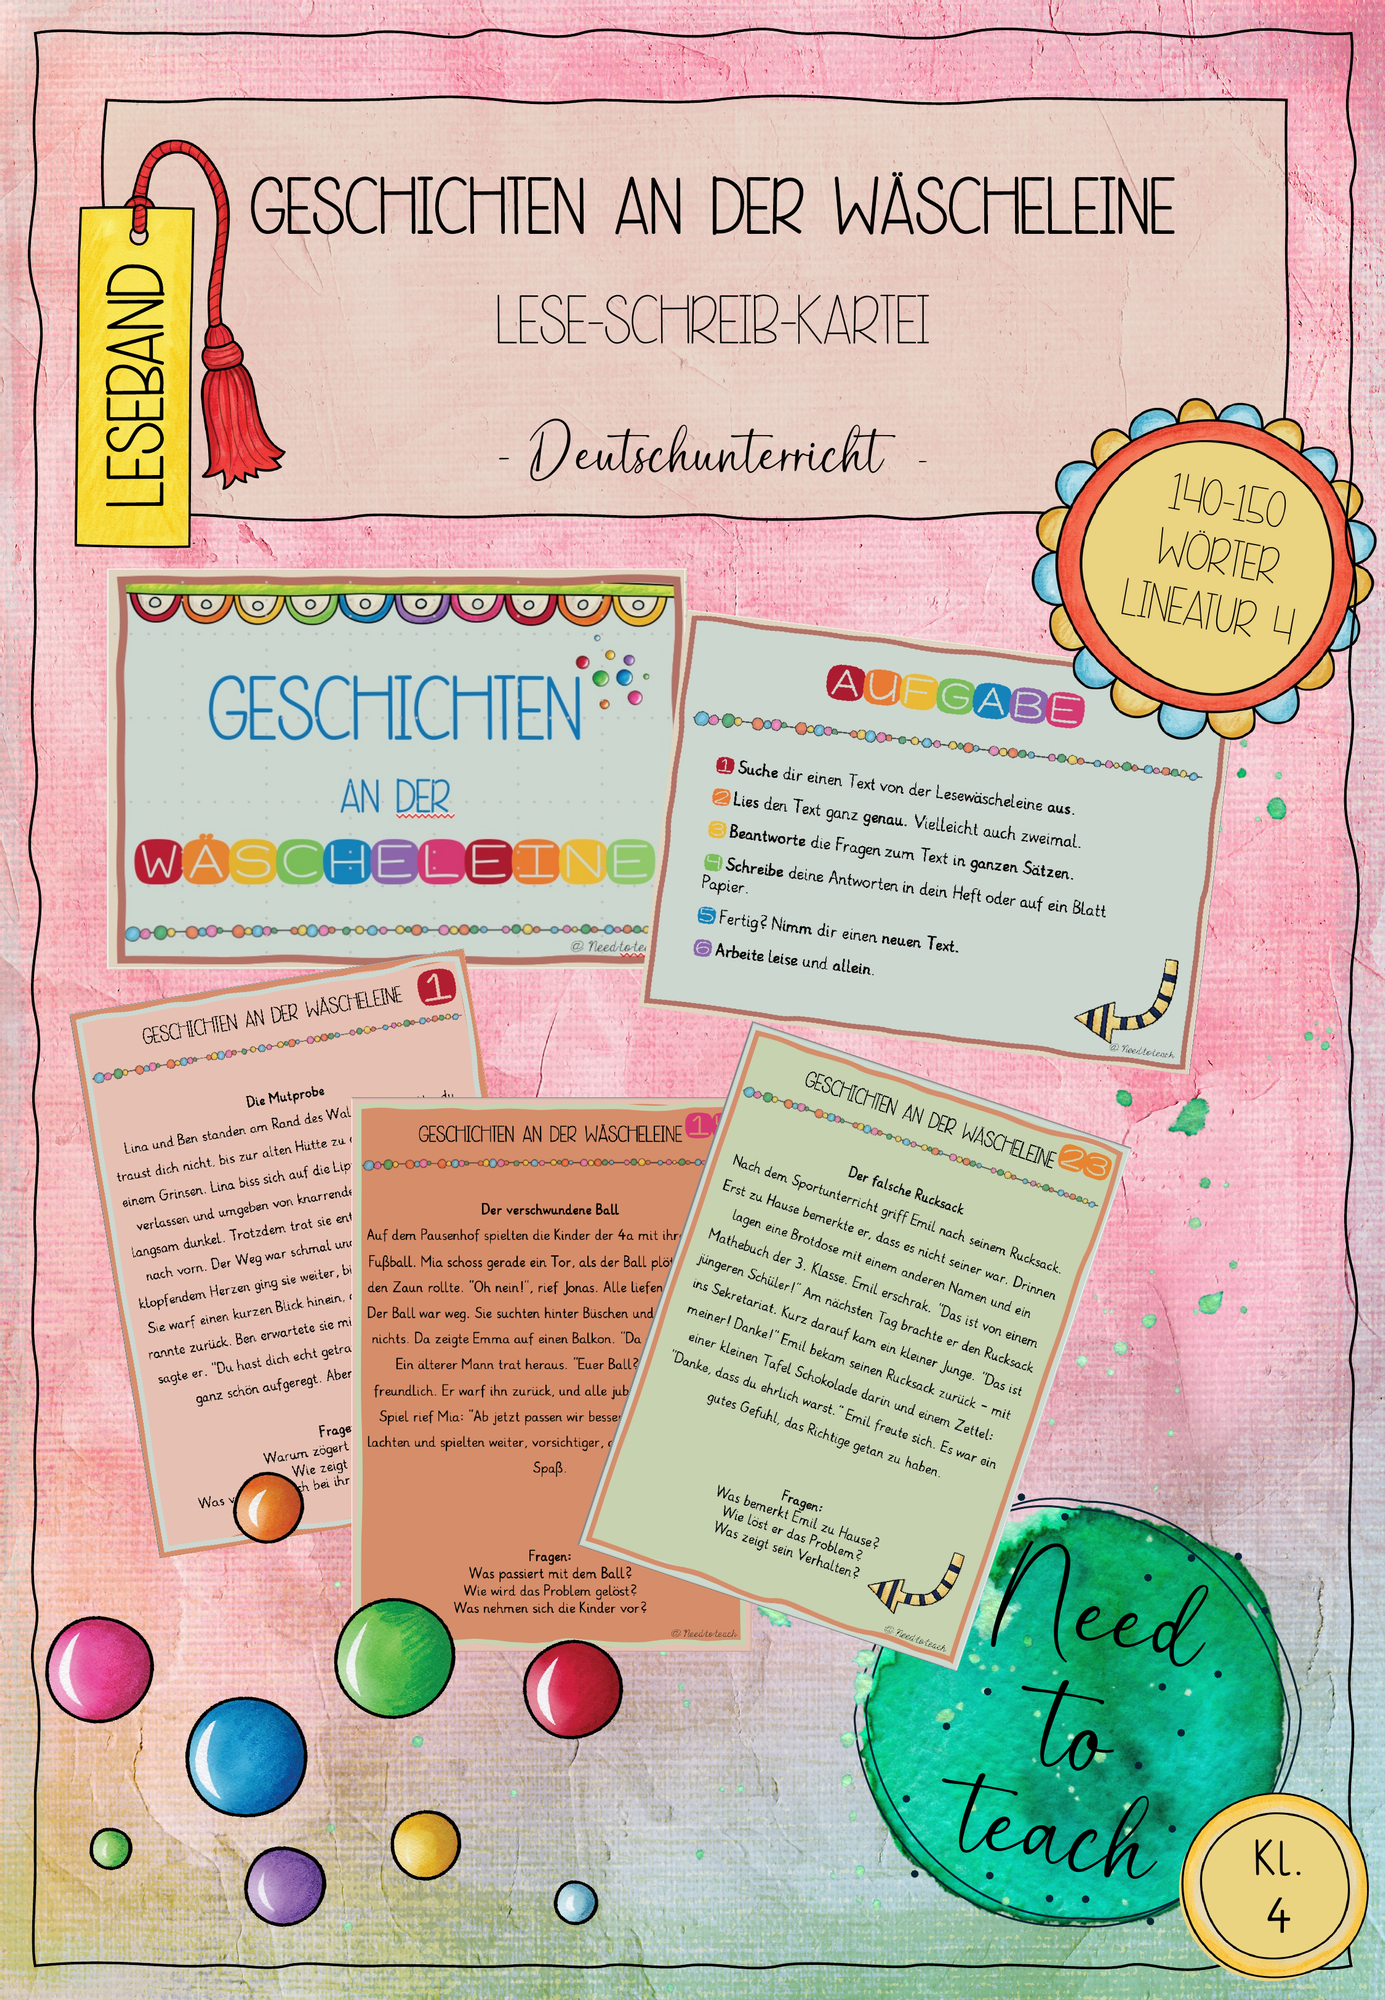 GESCHICHTEN AN DER WÄSCHELEINE
LESE-SCHREIB-KARTEI
- Deutschunterricht -
LESEBAND
140-150
WÖRTER
LINEATUR 4
GESCHICHTEN
AN DER
WÄSCHELEINE
@ Needtotea
AUFGABE
1 Suche dir einen Text von der Lesewäscheleine aus.
2 Lies den Text ganz genau. Vielleicht auch zweimal.
3 Beantworte die Fragen zum Text in ganzen Sätzen.
4 Schreibe deine Antworten in dein Heft oder auf ein Blatt
Papier.
5 Fertig? Nimm dir einen neuen Text.
6 Arbeite leise und allein.
@ Needtoteach
GESCHICHTEN AN DER WÄSCHELEINE 1
Die Mutprobe
Lina und Ben standen am Rand des Wal
du
traust dich nicht, bis zur alten Hütte zu
einem Grinsen. Lina biss sich auf die Lip
verlassen und umgeben von knarrende
langsam dunkel. Trotzdem trat sie ent
nach vorn. Der Weg war schmal und
klopfendem Herzen ging sie weiter, bi
Sie warf einen kurzen Blick hinein,
rannte zurück. Ben erwartete sie mi
sagte er. "Du hast dich echt getra
ganz schön aufgeregt. Aber
Frage
Warum zögert
Wie zeigt
Was ch bei ihr
GESCHICHTEN AN DER WÄSCHELEINE 1
Der verschwundene Ball
Auf dem Pausenhof spielten die Kinder der 4a mit ihr
Fußball. Mia schoss gerade ein Tor, als der Ball plöt
den Zaun rollte. "Oh nein!", rief Jonas. Alle liefen
Der Ball war weg. Sie suchten hinter Büschen und
nichts. Da zeigte Emma auf einen Balkon. "Da
Ein älterer Mann trat heraus. "Euer Ball?
freundlich. Er warf ihn zurück, und alle jub
Spiel rief Mia: "Ab jetzt passen wir besse
lachten und spielten weiter, vorsichtiger,
Spaß.
Fragen:
Was passiert mit dem Ball?
Wie wird das Problem gelöst?
Was nehmen sich die Kinder vor?
@ Needtoteach
GESCHICHTEN AN DER WÄSCHELEINE 23
Der falsche Rucksack
Nach dem Sportunterricht griff Emil nach seinem Rucksack.
Erst zu Hause bemerkte er, dass es nicht seiner war. Drinnen
lagen eine Brotdose mit einem anderen Namen und ein
Mathebuch der 3. Klasse. Emil erschrak. "Das ist von einem
jüngeren Schüler!" Am nächsten Tag brachte er den Rucksack
ins Sekretariat. Kurz darauf kam ein kleiner Junge. "Das ist
meiner! Danke!" Emil bekam seinen Rucksack zurück – mit
einer kleinen Tafel Schokolade darin und einem Zettel:
"Danke, dass du ehrlich warst." Emil freute sich. Es war ein
gutes Gefühl, das Richtige getan zu haben.
Fragen:
Was bemerkt Emil zu Hause?
Wie löst er das Problem?
Was zeigt sein Verhalten?
@ Needtoteach
Need
to
teach
Kl.
4